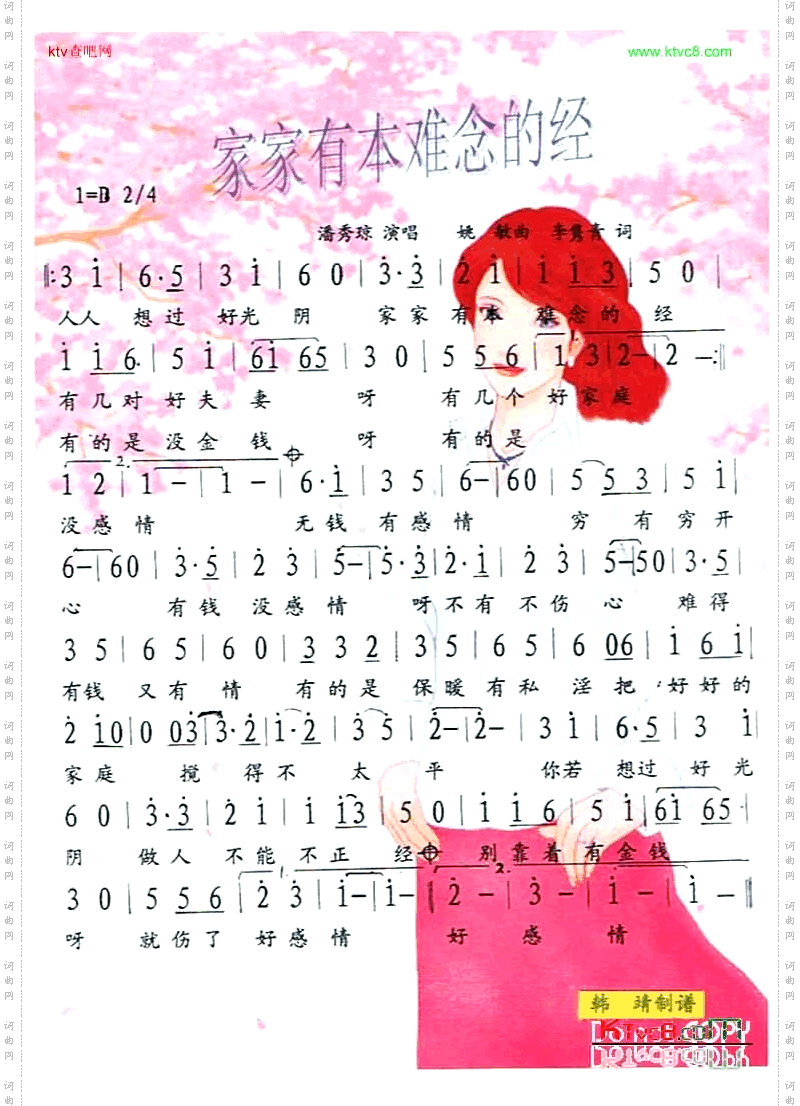 ktv查吧网 www.ktvc8.com
家家有本难念的经
1=B 2/4
潘秀琼 演唱 姚 敏曲 李隽青 词
‖:3 i̇ | 6·5 | 3 i̇ | 6 0 | 3̇·3̇ | 2̇ i̇ | i̇ i̇ 3 | 5 0 |
人人 想过 好光 阴 家家 有本 难念的 经
i̇ i̇ 6 | 5 i̇ | 6i̇ 65 | 3 0 | 5 5 6 | 1 3 | 2- | 2 -:‖
有几对 好夫 妻 呀 有几个 好家庭
有的是 没金 钱 呀 有的是
2.
1 2 | 1 - | 1 - | 6·i̇ | 3 5 | 6- | 60 | 5 5 3 | 5 i̇ |
没感 情 无钱 有感 情 穷 有穷开
6- | 60 | 3̇·5 | 2̇ 3̇ | 5- | 5·3̇ | 2̇·i̇ | 2̇ 3̇ | 5- | 50 | 3̇·5 |
心 有钱 没感 情 呀不有 不伤 心 难得
3 5 | 6 5 | 6 0 | 3 3 2 | 3 5 | 6 5 | 6 06 | i̇ 6 i̇ |
有钱 又有 情 有的是 保暖 有私 淫把 好好的
2̇ i̇0 | 0 03̇ | 3̇·2̇ | i̇·2̇ | 3̇ 5 | 2̇- | 2̇- | 3 i̇ | 6·5 | 3 i̇ |
家庭 搅 得不 太 平 你若 想过 好光
6 0 | 3̇·3̇ | 2̇ i̇ | i̇ i̇3 | 5 0 | i̇ i̇ 6 | 5 i̇ | 6i̇ 65 |
阴 做人 不能 不正 经 别靠着 有金钱
1. 2.
3 0 | 5 5 6 | 2̇ 3̇ | i̇- | i̇- ‖ 2̇ - | 3̇ - | i̇ - | i̇ - ‖
呀 就伤了 好感情 好 感 情
韩 靖制谱
KTvc8.com
词曲网